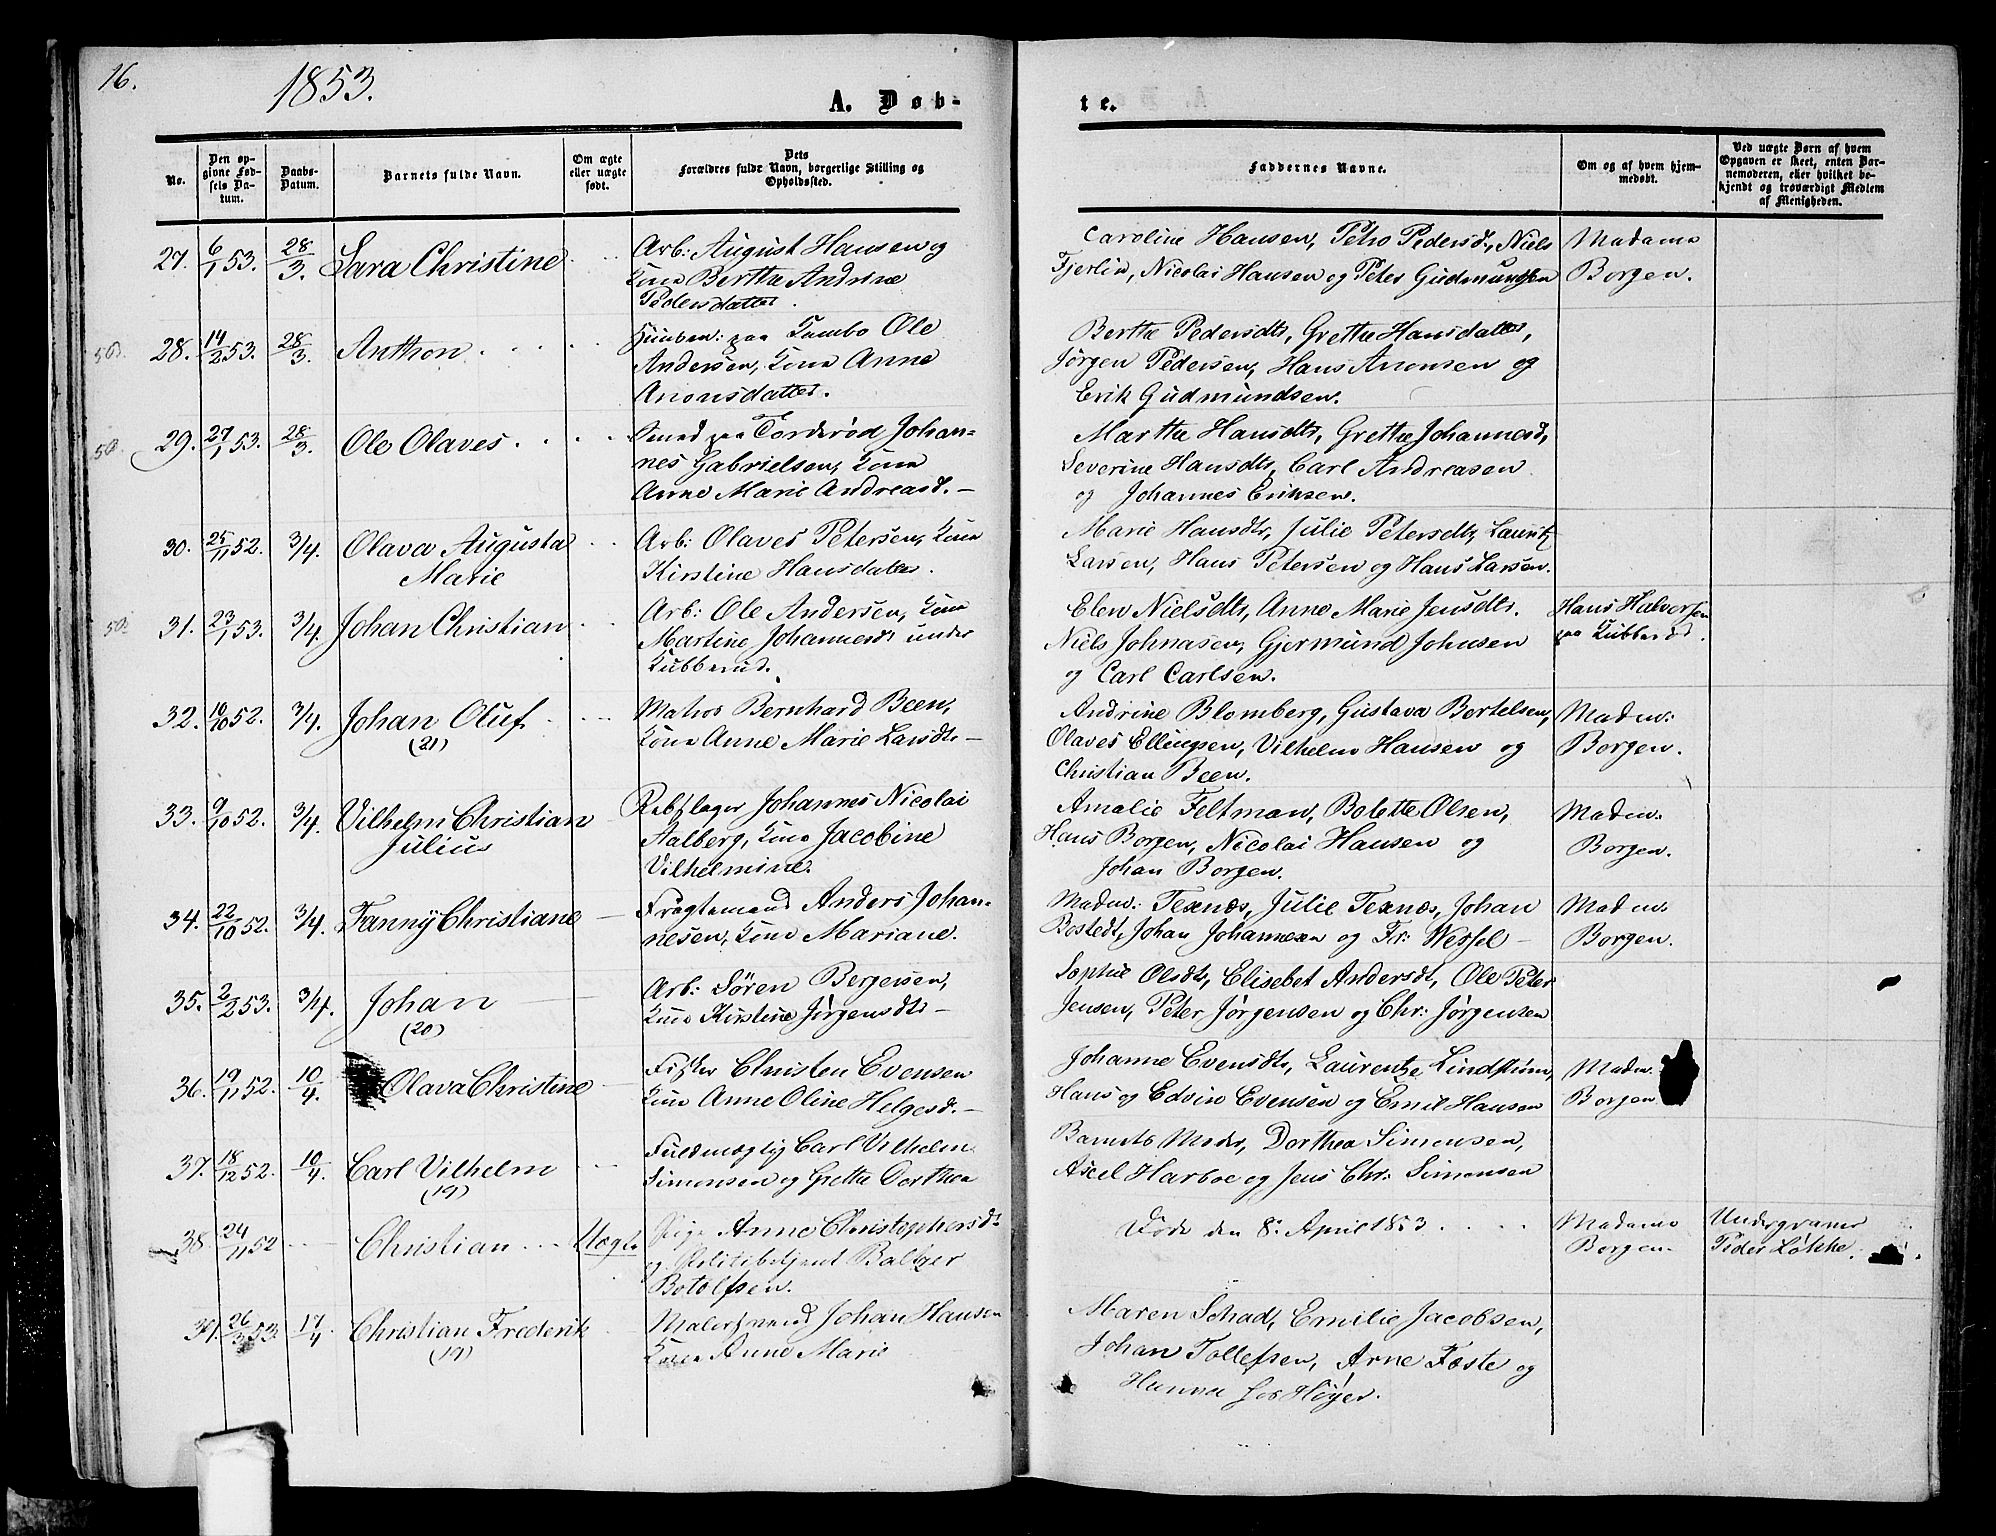 16.
1853.
A. Døb-
te.
No.
Den op-
givne Fød-
sels Da-
tum.
Daabs-
Datum.
Barnets fulde Navn.
Om ægte
eller uægte
født.
Dets
Forældres fulde Navn, borgerlige Stilling og
Opholdssted.
Faddernes Navne.
Om og af hvem hjem-
medøbt.
Ved uægte Børn af hvem
Opgaven er skeet, enten Bar-
nemoderen, eller hvilket be-
kjendt og troværdigt Medlem
af Menigheden.
27. 6/1 53. 28/3. Sara Christine
Arb: August Hansen og
Kone Berthe Andrine
Pedersdatter.
Caroline Hansen, Petro Pedersd., Niels
Fjerlin, Nicolai Hansen og Peter Gudmundsen
Madame
Borgen.
28. 14/2 53. 28/3. Anthon
paa Tambo Ole
Andersen, Kone Anne
Anonsdatter.
Berthe Pedersdtr, Grethe Hansdatter,
Jørgen Pedersen, Hans Anonsen og
Erik Gudmundsen.
29. 27/1 53. 28/3. Ole Olaves
Smed paa Torderød Johan-
nes Gabrielsen, Kone
Anne Marie Andreasd.
Marthe Hansdtr, Grethe Johannesd,
Severine Hansdtr, Carl Andreasen
og Johannes Eriksen.
30. 25/11 52. 3/4. Olava Augusta
Marie
Arb: Olaves Petersen, Kone
Kirstine Hansdatter.
Marie Hansdtr, Julie Petersdtr, Lauritz
Larsen, Hans Petersen og Hans Larsen.
31. 23/1 53. 3/4. Johan Christian
Arb: Ole Andersen, Kone
Martine Johannesdtr under
Kubberud.
Elen Nielsdtr, Anne Marie Jensdtr.
Niels Johnasen, Gjermund Johnsen
og Carl Carlsen.
Hans Halvorsen
paa Kubberød.
32. 16/10 52. 3/4. Johan Oluf
(21)
Matros Bernhard Been,
Kone Anne Marie Larsdtr
Andrine Blomberg, Gustava Bertelsen,
Olaves Ellingsen, Vilhelm Hansen og
Christian Been.
Madm:
Borgen.
33. 9/10 52. 3/4. Vilhelm Christian
Julius
Rebslager Johannes Nicolai
Aalberg, Kone Jacobine
Vilhelmine.
Amalie Feltman, Bolette Olsen,
Hans Borgen, Nicolai Hansen og
Johan Borgen.
Madm:
Borgen.
34. 22/10 52. 3/4. Fanny Christiane
Fragtemand Anders Johan-
nesen, Kone Mariane.
Madm: Texnæs, Julie Texnæs, Johan
Bostedt, Johan Johannesen og Fr: Wessel
Madm:
Borgen.
35. 2/2 53. 3/4. Johan
(20)
Arb: Søren Bergersen,
Kone Kirstine Jørgensdtr
Sophie Olsdtr, Elisebet Andersdt, Ole Peter
Jensen, Peter Jørgensen og Chr: Jørgensen
36. 19/11 52. 10/4. Olava Christine
Fisker Christen Evensen
Kone Anne Oline Helgesd.
Johanne Evensdtr, Laurentze Lindstrøm,
Hans og Edvin Evensen og Emil Hansen
Madm.
Borgen
37. 18/12 52. 10/4. Carl Vilhelm
(19)
Fuldmægtig Carl Vilhelm
Simonsen og Grethe Dorthea
Barnets Moder, Dorthea Simonsen,
Axel Harboe og Jens Chr: Simonsen
38. 24/11 52 Christian Uægte
Pige Anne Christophersdtr
og Politibetjent Baltzer
Botolfsen.
Døde den 8. April 1853.
Madame
Borgen.
Undergivne
Peder Løkke.
39. 26/3 53. 17/4. Christian Frederik
(19)
Malersvend Johan Hansen
Kone Anne Marie
Maren Schad, Emilie Jacobsen,
Johan Tollefsen, Arne Foste og
Hanna Høyer.